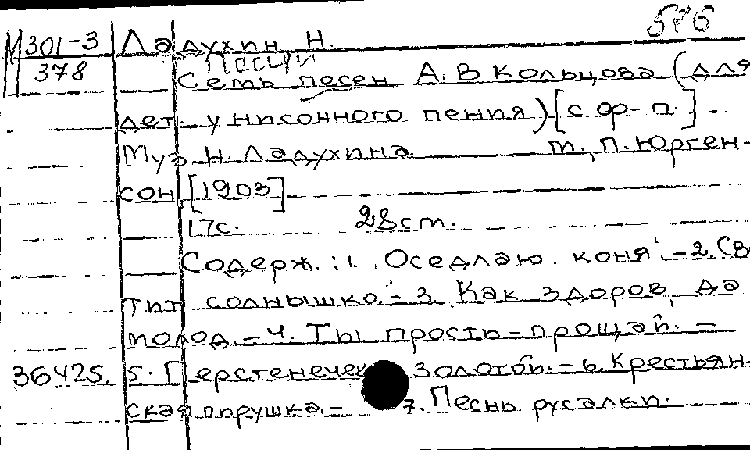 586
М301-3 Ладухин Н.
378
Семь песен А.В Кольцова (для
дет. унисонного пения) [с ф-п.].
Муз Н. Ладухина М., П. Юрген-
сон [1903]
17с. 28см.
Содерж.: 1. Оседлаю коня - 2. Све
тит солнышко. - 3. Как здоров, да
молод. - 4. Ты прости-прощай. -
36425. 5. Перстенечек золотой. - 6. Крестьян-
ская пирушка. - 7. Песнь русалки.